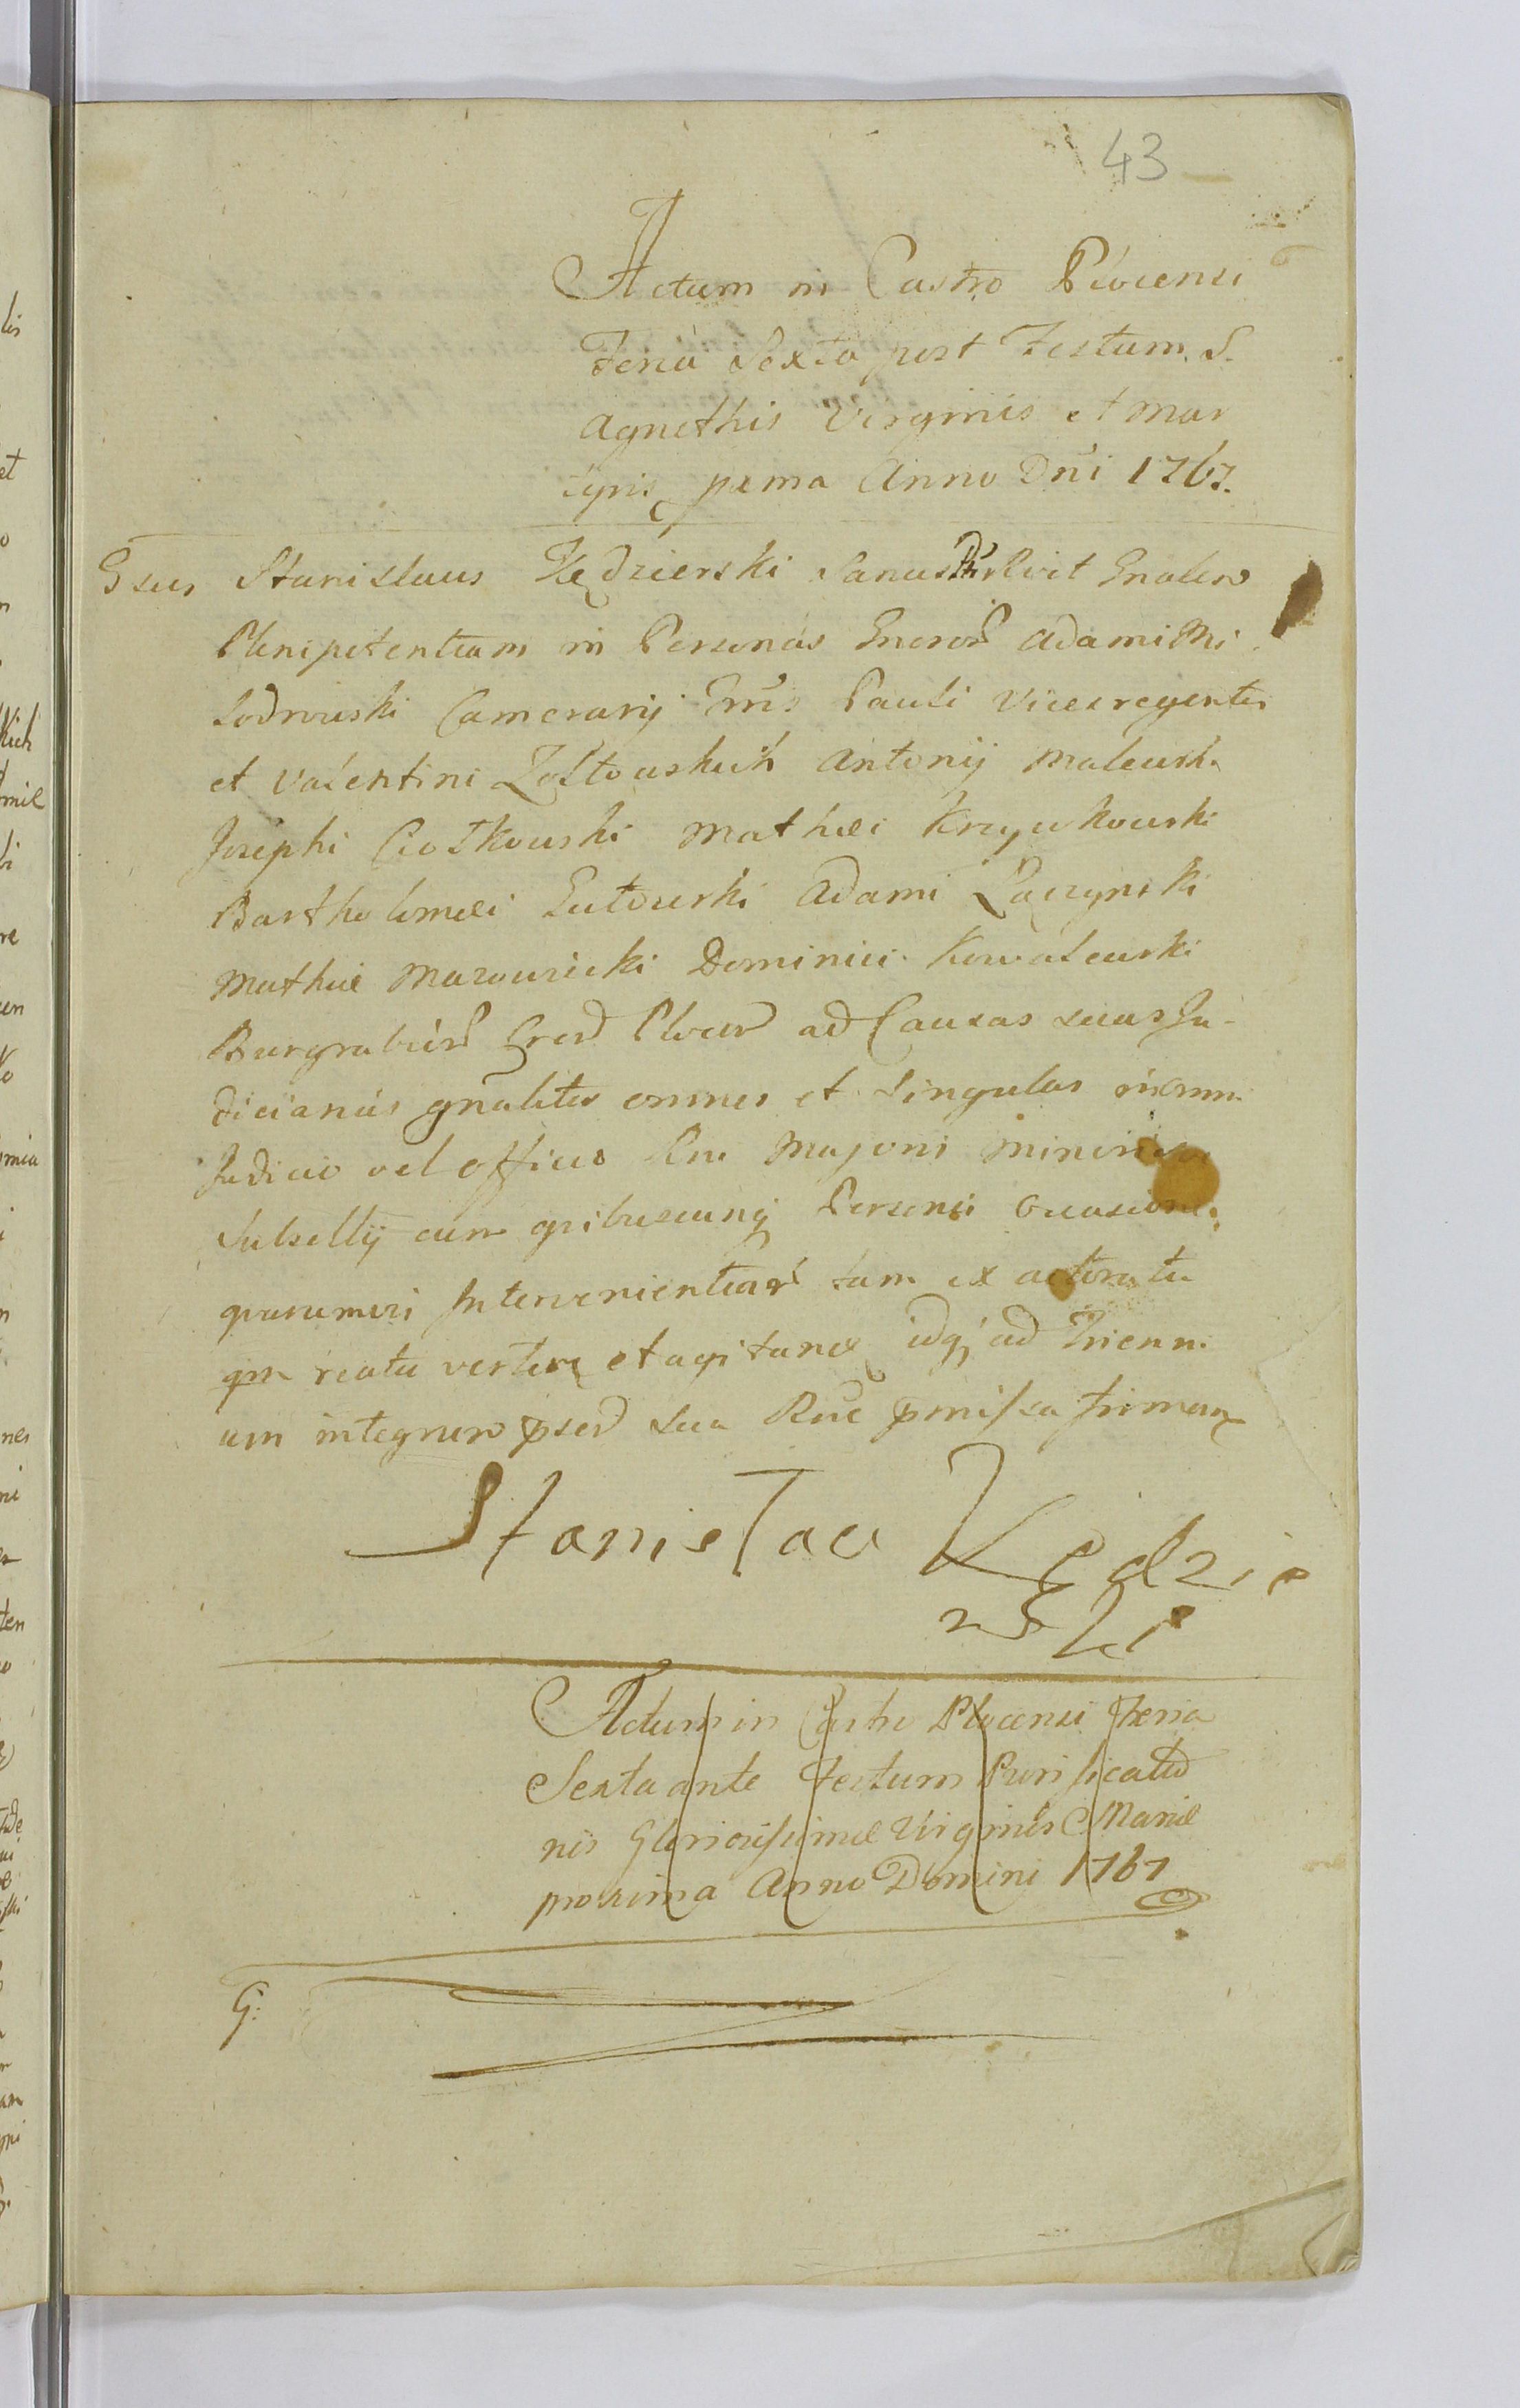 43
Actum in Castro Plocensi
Feria Sexta post Festum S.
Agnethis Virginis et Mar
tyris pxma Anno Dni 1767.
Gsus Stanislaus Kędzierski Sanus Rvit Gnalem
Plenipotentiam in Personas Gnosor Adami Mi
lodrowski Camerarij Pauli Vicesregentis
et Valentini Zołtowskich Antonij Malewski
Josephi Ciołkowski Mathei Krzywkowski
Bartholomei Gutowski Adami Łączynski
Mathiæ Mazowiecki Dominici Kowalewski
Burgrabior Grod Plocen ad Causas suas Ju-
dicianas gnaliter omnes et Singulas in omni
Judicio vel officio Rni Majoni minorisq
Subsellij cum quibuscunq Personis occasione
quarumvis Intervenientiar tam ex actoratu
qm reatu verten et agitanes idq ad Trienni
um integrum psed sua Rne pmissa firman
Stanisław Kędzie
rski
Actum in Castro Plocensi Feria
Sexta ante Festum Purificatio
nis Gloriosissimæ Virginis Mariæ
proxima Anno Domini 1767
G: